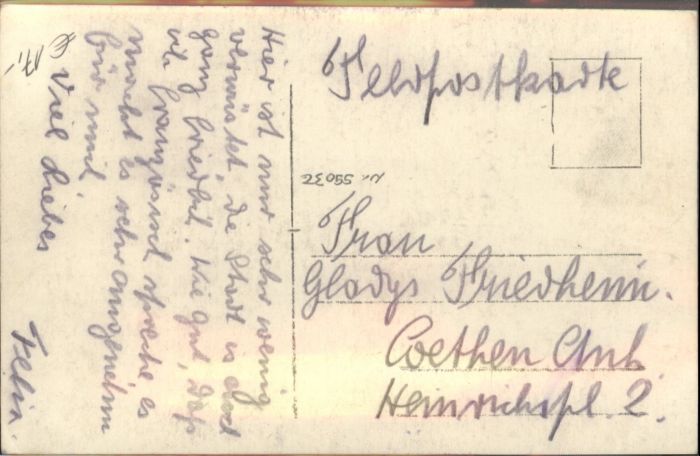 Feldpostkarte
Frau
Gladys Friedheim.
Coethen Anh.
Heinrichspl. 2.
Hier ist nur sehr wenig
verwüstet, die Stadt is doch
ganz friedl. Wie gut, daß
ich französisch spreche es
macht es sehr angenehm
für mich
Viel Liebes
Felix.